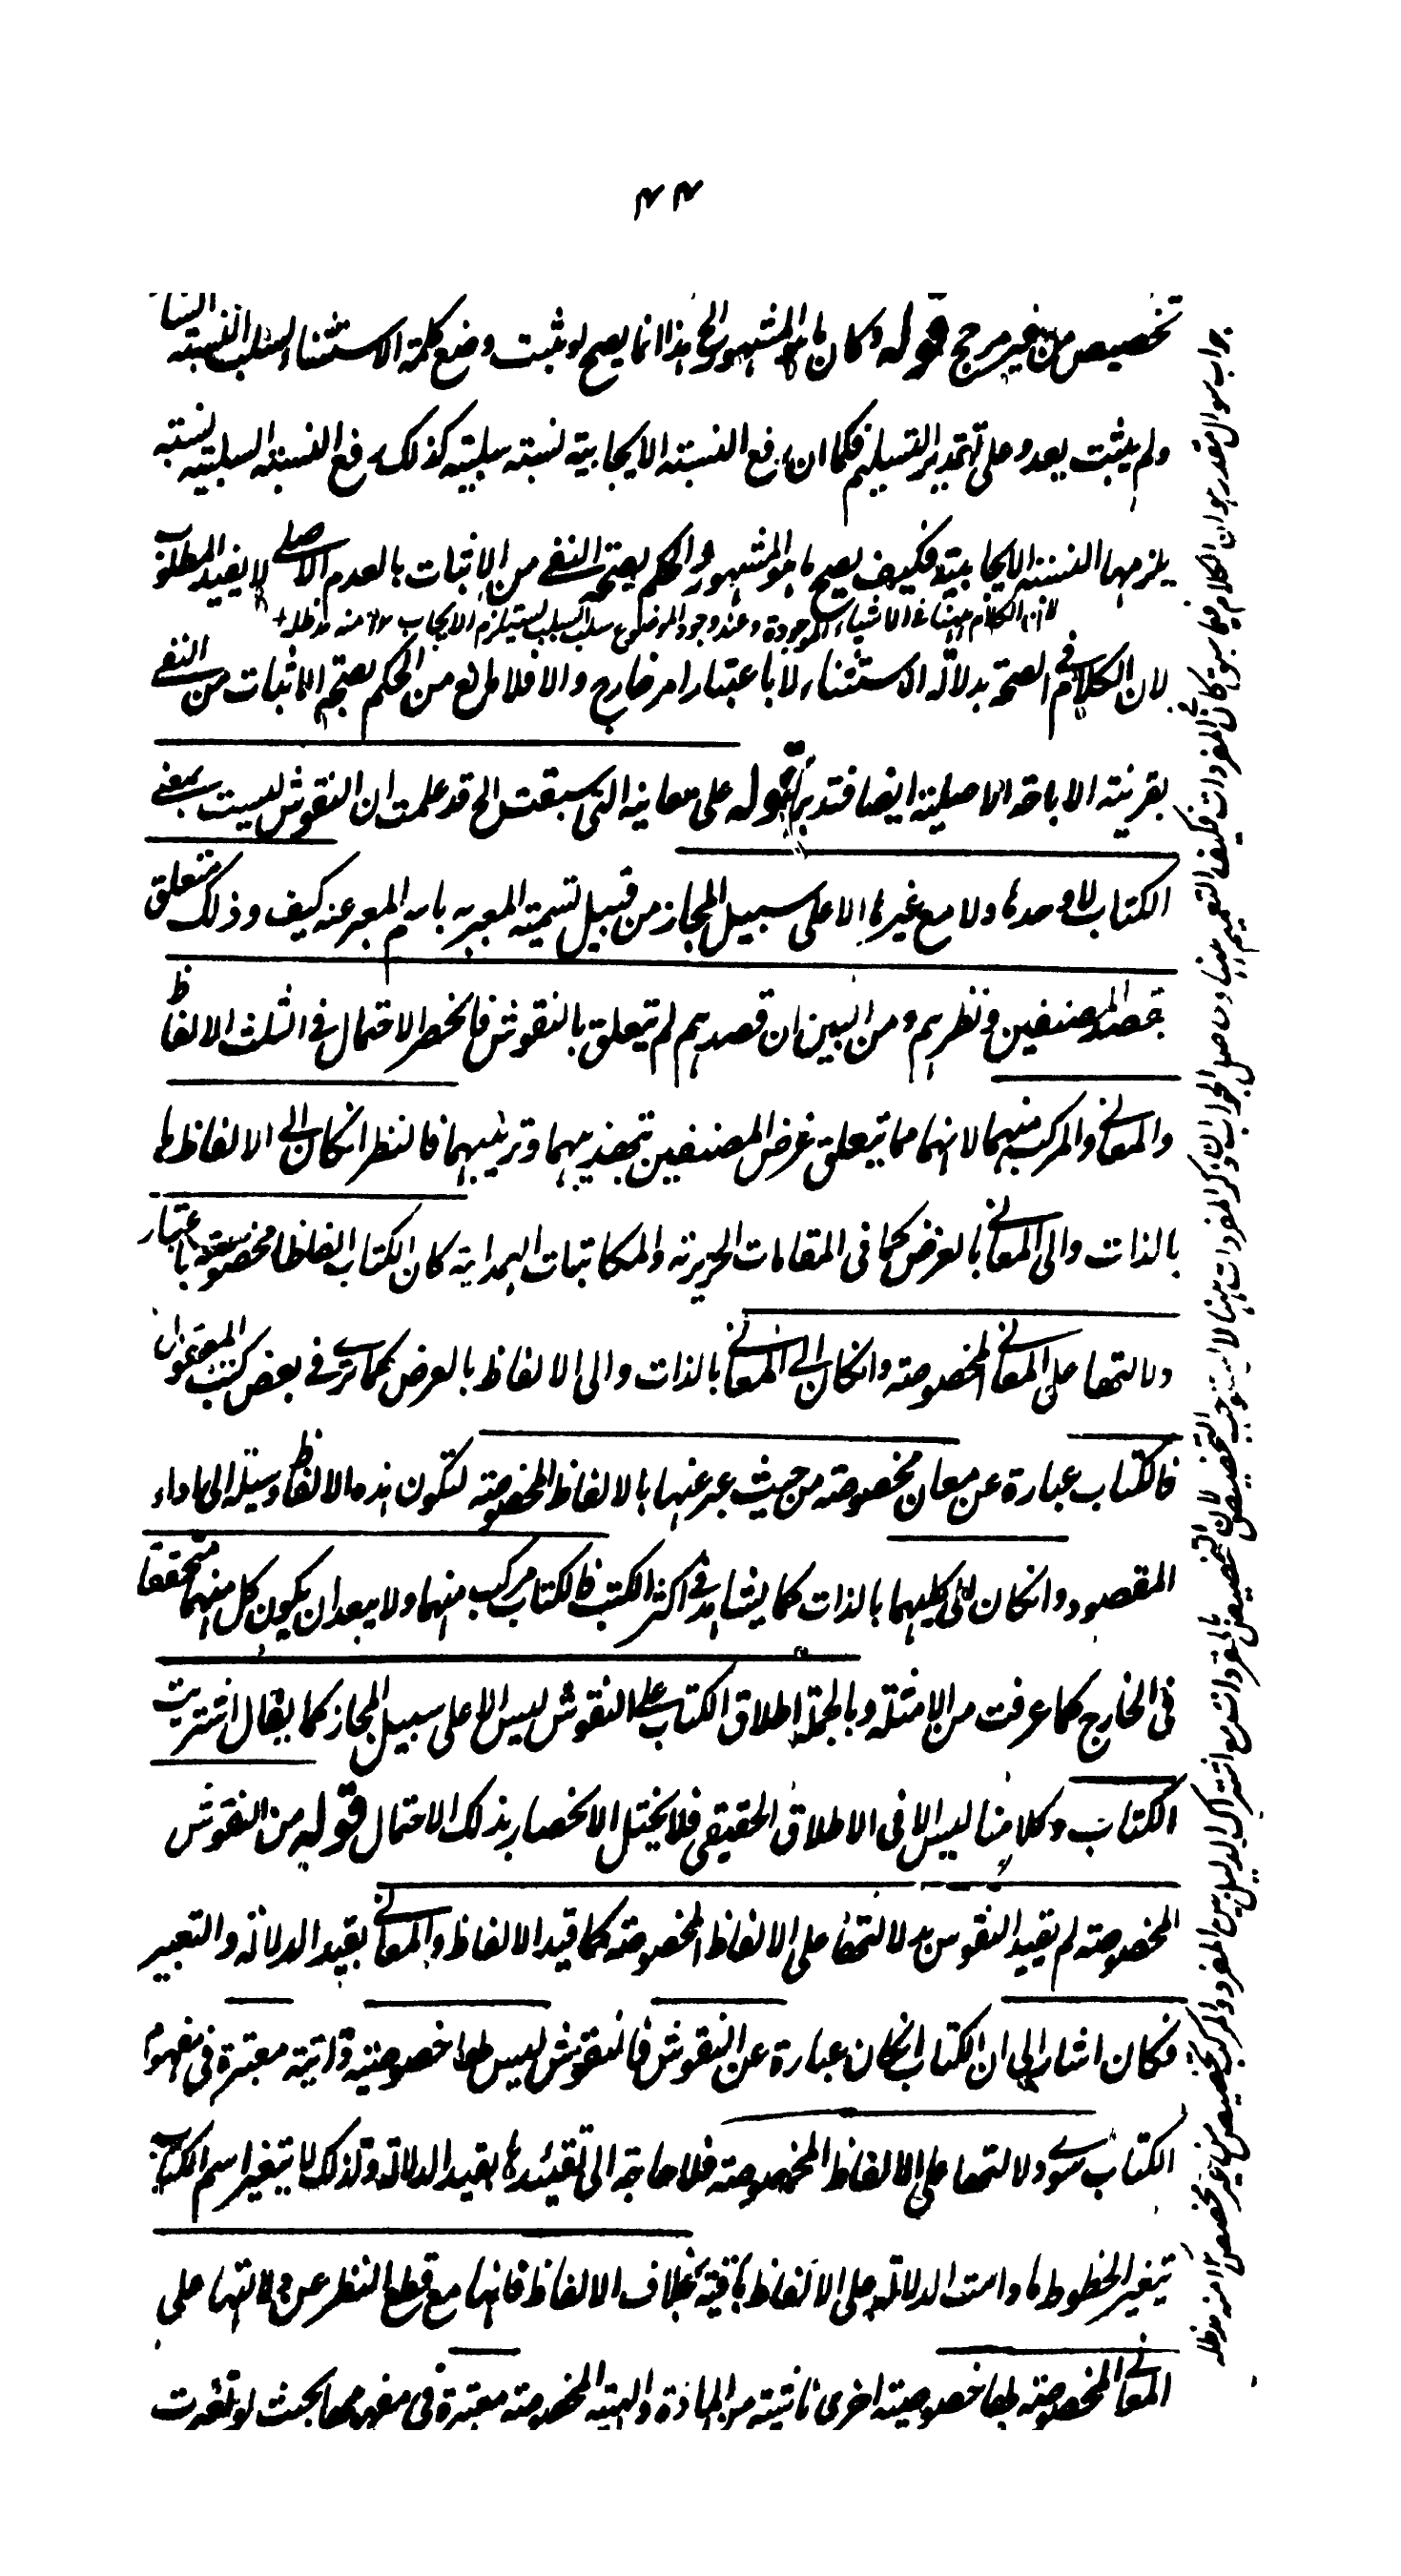 ٤٤
تخصيص من غير مرجح قوله وكان ما هو المشهور الخ هذا انما يصح لو ثبت وضع كلمة الاستثناء لسلب النسبة
ولم يثبت بعد وعلى تقدير التسليم فكما ان رفع النسبة الايجابية نسبة سلبية كذلك رفع النسبة السلبية نسبة
يلزمها النسبة الايجابية فكيف يصح ما هو المشهور والحكم بصحة النفى من الاثبات بالعدم الاصلى لا يفيد المطلوب
لان الكلام ههنا فى الاشياء الموجودة وعند وجود الموضوع سلب السلب يستلزم الايجاب ١٢ منه مد ظله
لان الكلام فى الصحة بدلالة الاستثناء لا باعتبار امر خارج والا فلا مانع من الحكم بصحة الاثبات من النفى
بقرينة الاباحة الاصلية ايضا فتدبر قوله على معانيه التى سبقت الخ قد علمت ان النقوش ليست بمعنى
الكتاب لا وحدها ولا مع غيرها الا على سبيل المجاز من قبيل تسمية المعبر به باسم المعبر عنه كيف وذلك متعلق
بقصد المصنفين ونظرهم ومن البين ان قصدهم لم يتعلق بالنقوش فانحصر الاحتمال فى الثلث الالفاظ
والمعانى والمركب منهما لانهما مما يتعلق غرض المصنفين بتهذيبهما وترتيبهما فالنظر انكان الى الالفاظ
بالذات والى المعانى بالعرض كما فى المقامات الحريرية والمكاتبات الهمدانية كان الكتاب الفاظا مخصوصة باعتبار
دلالتها على المعانى المخصوصة وانكان الى المعانى بالذات والى الالفاظ بالعرض كما ترى فى بعض كتب المعقول
فالكتاب عبارة عن معان مخصوصة من حيث عبر عنها بالالفاظ المخصوصة لتكون هذه الالفاظ وسيلة الى اداء
المقصود وانكان الى كليهما بالذات كما يشاهد فى اكثر الكتب فالكتاب مركب منهما ولا يبعد ان يكون كل منهما متحققا
فى الخارج كما عرفت من الامثلة وبالجملة اطلاق الكتاب على النقوش ليس الا على سبيل المجاز كما يقال اشتريت
الكتاب وكلامنا ليس الا فى الاطلاق الحقيقى فلا يختل الانحصار بذلك الاحتمال قوله من النقوش
المخصوصة لم يقيد النقوش بدلالتها على الالفاظ المخصوصة كما قيد الالفاظ والمعانى بقيد الدلالة والتعبير
فكان اشار الى ان الكتاب انكان عبارة عن النقوش فالنقوش ليس لها خصوصية ذاتية معتبرة فى مفهوم
الكتاب سوى دلالتها على الالفاظ المخصوصة فلا حاجة الى تقييدها بقيد الدلالة ولذلك لا يتغير اسم الكتاب
بتغير الخطوط ما دامت الدلالة على الالفاظ باقية بخلاف الالفاظ فانها مع قطع النظر عن دلالتها على
المعانى المخصوصة لها خصوصية اخرى ناشية من المادة والهيئة المخصوصة معتبرة فى مفهومها بحيث لو تغيرت
جواب سوال مقدر هو ان الكلام فيما سبق كان فى المفردات فكيف التعميم ههنا وحاصل الجواب ان ذكر المفردات ههنا لا يستوجب التخصيص لان التخصيص بالمفردات مع اشتراك الدليل بين المفرد والمركب تخصيص من غير مخصص ١٢ منه مد ظله